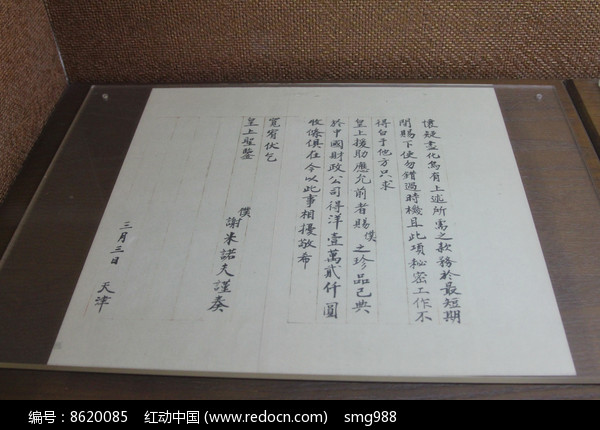 懷疑盡化為有上述所需之款務於最短期
間賜下使勿錯過時機且此項秘密工作不
得白于他方只求
皇上援助應允前者賜僕之珍品已典
於中國財政公司得洋壹萬貳仟圓
收條俱在今以此事相擾敬希
寬宥伏乞
皇上聖鑒
僕 謝米諾夫謹奏
三月三日 天津
编号：8620085 红动中国 (www.redocn.com) smg988